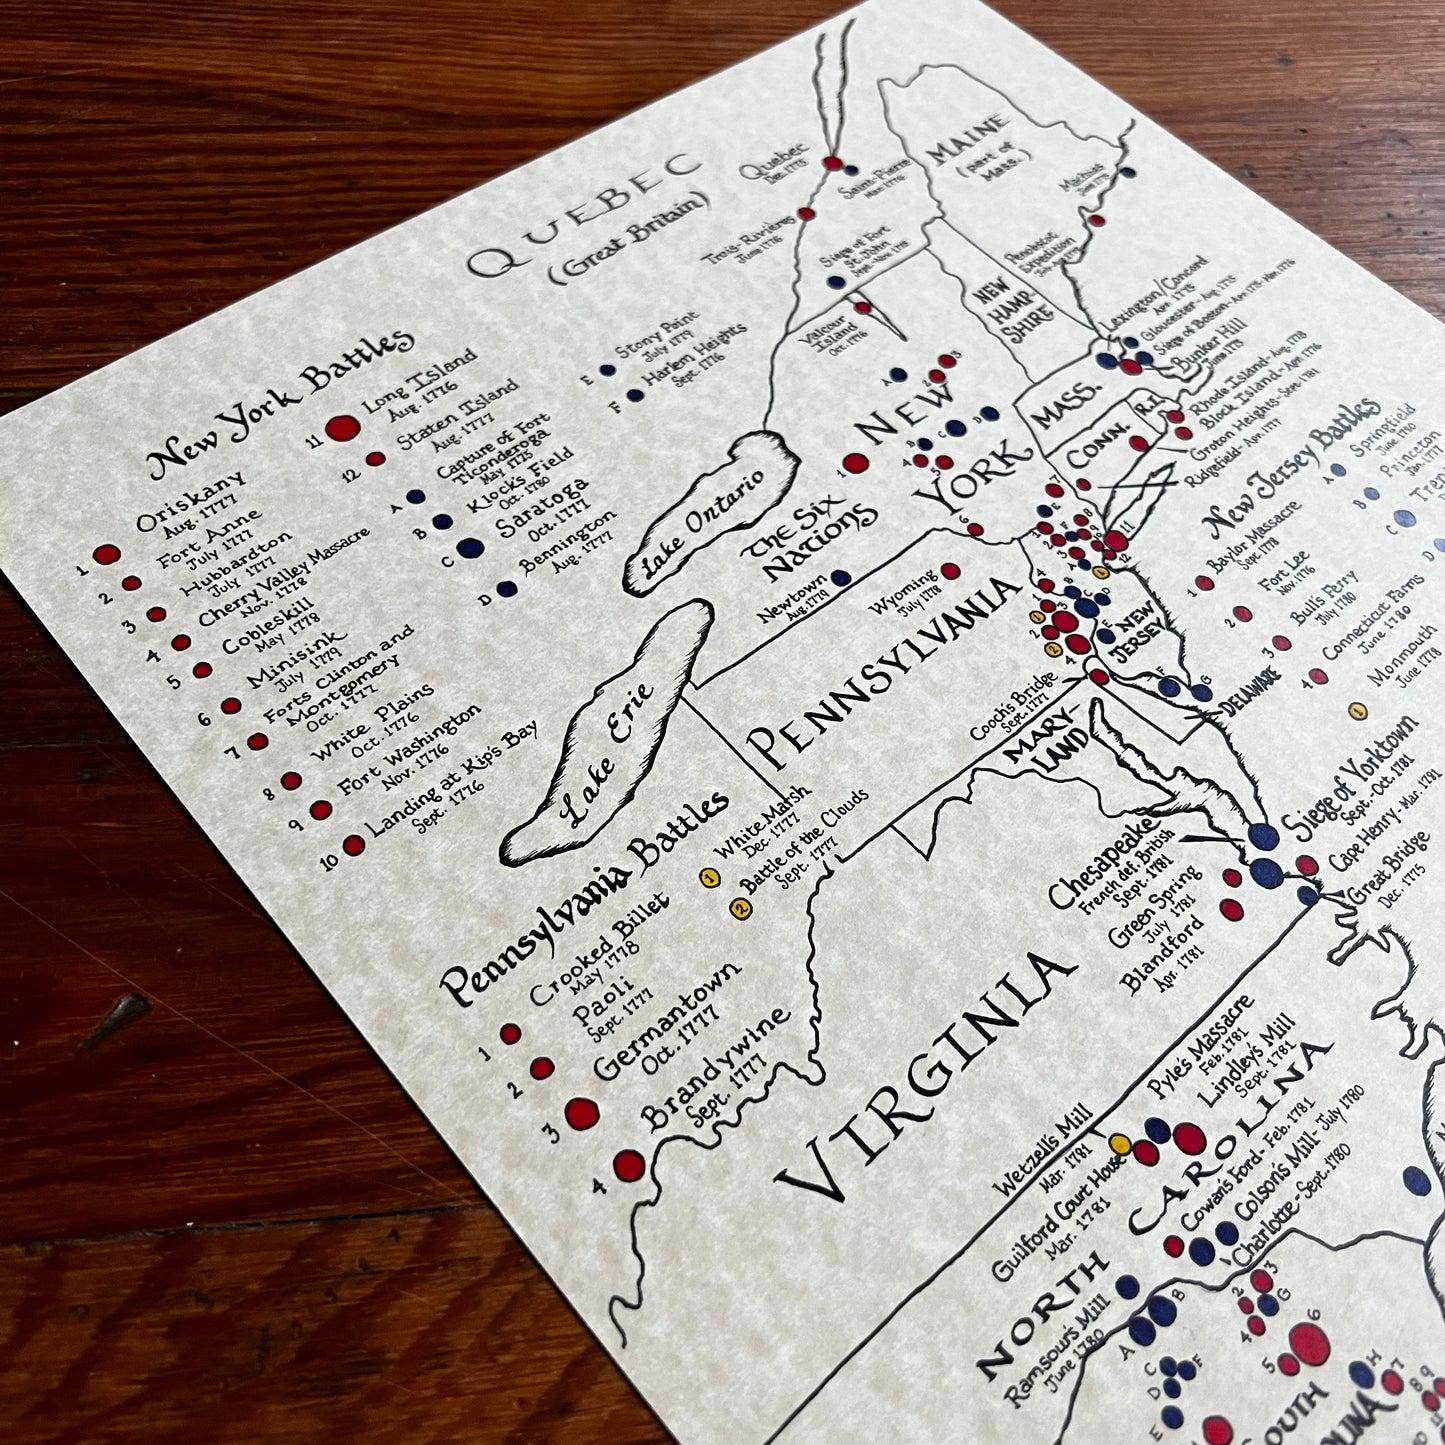 QUEBEC
(Great Britain)
Quebec
Dec. 1775
Saint-Pierre
Mar. 1776
MAINE
(part of
Mass.)
Machias
June 1775
Trois-Rivières
June 1776
Siege of Fort
St. John
Sept.-Nov. 1775
Penobscot
Expedition
Valcour
Island
Oct. 1776
NEW
HAMP-
SHIRE
Lexington/Concord
Apr. 1775
Gloucester - Aug. 1775
Siege of Boston - Apr. 1775 - Mar. 1776
Bunker Hill
June 1775
Rhode Island - Aug. 1778
Block Island - Apr. 1776
Groton Heights - Sept. 1781
Ridgefield - Apr. 1777
MASS.
R.I.
CONN.
New York Battles
11 Long Island
Aug. 1776
12 Staten Island
Aug. 1777
1 Oriskany
Aug. 1777
2 Fort Anne
July 1777
3 Hubbardton
July 1777
4 Cherry Valley Massacre
Nov. 1778
5 Cobleskill
May 1778
6 Minisink
July 1779
7 Forts Clinton and
Montgomery
Oct. 1777
8 White Plains
Oct. 1776
9 Fort Washington
Nov. 1776
10 Landing at Kip's Bay
Sept. 1776
A Capture of Fort
Ticonderoga
May 1775
B Klock's Field
Oct. 1780
C Saratoga
Oct. 1777
D Bennington
Aug. 1777
E Stony Point
July 1779
F Harlem Heights
Sept. 1776
NEW
YORK
The Six
Nations
Lake Ontario
Lake Erie
Newtown
Aug. 1779
Wyoming
July 1778
PENNSYLVANIA
NEW
JERSEY
DELAWARE
Cooch's Bridge
Sept. 1777
MARY-
LAND
New Jersey Battles
1 Baylor Massacre
Sept. 1778
2 Fort Lee
Nov. 1776
3 Bull's Ferry
July 1780
4 Connecticut Farms
June 1780
1 Monmouth
June 1778
A Springfield
June 1780
B Princeton
Jan. 1777
C
D
Pennsylvania Battles
1 White Marsh
Dec. 1777
2 Battle of the Clouds
Sept. 1777
1 Crooked Billet
May 1778
2 Paoli
Sept. 1777
3 Germantown
Oct. 1777
4 Brandywine
Sept. 1777
Siege of Yorktown
Sept.-Oct. 1781
Cape Henry - Mar. 1781
Great Bridge
Dec. 1775
Chesapeake
French def. British
Sept. 1781
Green Spring
July 1781
Blandford
Apr. 1781
VIRGINIA
Pyle's Massacre
Feb. 1781
Lindley's Mill
Sept. 1781
Wetzell's Mill
Mar. 1781
Guilford Court House
Mar. 1781
NORTH CAROLINA
Cowan's Ford - Feb. 1781
Colson's Mill - July 1780
Charlotte - Sept. 1780
Ramsour's Mill
June 1780